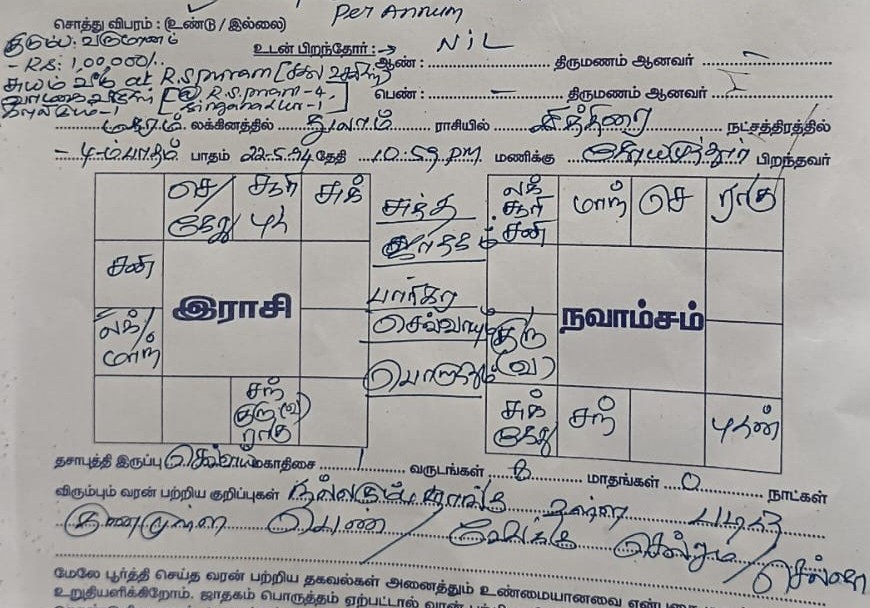 Per Annum
சொத்து விபரம் : (உண்டு / இல்லை)
குடும்ப வருமானம்
- RS: 1,00,000/-
உடன் பிறந்தோர் :→ NIL
ஆண் : திருமணம் ஆனவர் -
சுயம் வீடு at R.S.puram
பெண் : - திருமணம் ஆனவர்
R.S. puram-4,
Singanallur-1
மகரம் லக்கினத்தில் துலாம் ராசியில் சித்திரை நட்சத்திரத்தில்
- 4-ம்பாதம் பாதம் 22.5.94 தேதி 10.59 PM மணிக்கு கோயமுத்தூர் பிறந்தவர்
செ/ கேது
சூரி புத
சுக்
சனி
லக்/ மாந்
இராசி
சந் குரு (வ) ராகு
இந்த
ஜாதகம்
பார்கவ
செவ்வாயும்
பொருந்தும்
லக் சூரி சனி
மாந்
செ
ராகு
நவாம்சம்
குரு (வ)
சுக் கேது
சந்
புதன்
தசாபுத்தி இருப்பு செவ்வாய் மகாதிசை வருடங்கள் 8 மாதங்கள் 0 நாட்கள்
விரும்பும் வரன் பற்றிய குறிப்புகள் நல்ல நல்ல படித்த
குணமுள்ள பெண் / வேலைக்கு சென்றும் / செல்லா
மேலே பூர்த்தி செய்த வரன் பற்றிய தகவல்கள் அனைத்தும் உண்மையானவை என்பதை
உறுதியளிக்கிறோம். ஜாதகம் பொருத்தம் ஏற்பட்டால்